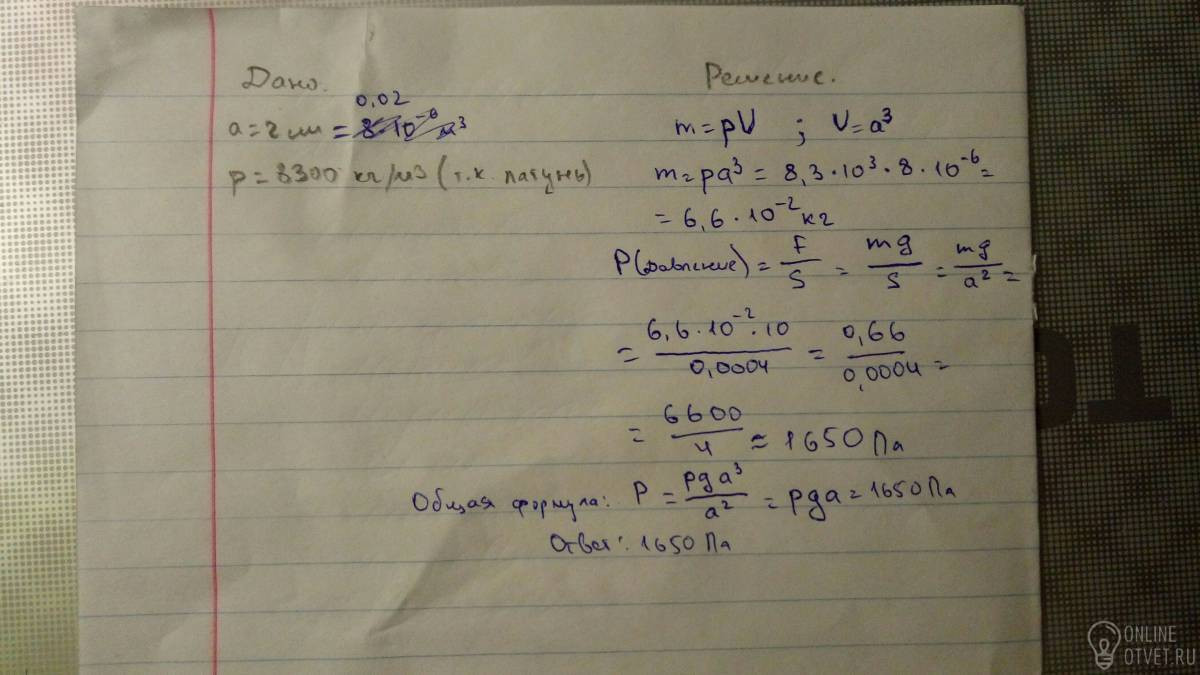 Дано.
0,02
a = 2 см = 8·10⁻⁶ м³
ρ = 8300 кг/м3 (т.к. латунь)
Решение.
m = ρV ; V = a³
m = ρa³ = 8,3·10³·8·10⁻⁶ =
= 6,6·10⁻² кг
P(давление) = F/S = mg/S = mg/a² =
= 6,6·10⁻²·10/0,0004 = 0,66/0,0004 =
= 6600/4 ≈ 1650 Па
Общая формула: P = ρga³/a² = ρga = 1650 Па
Ответ: 1650 Па
ONLINE
OTVET.RU